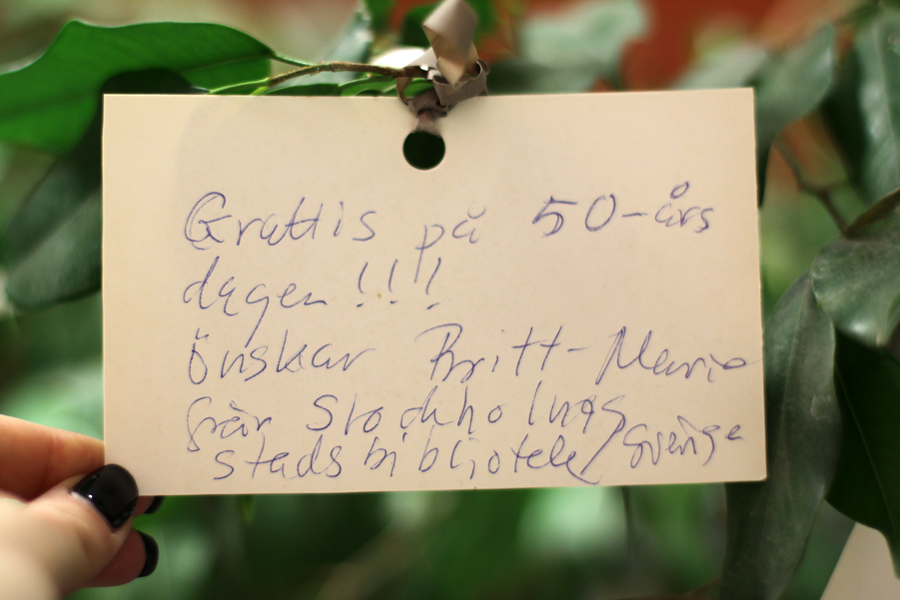 Grattis på 50-års
dagen !!!
önskar Britt-Marie
från Stockholms
stadsbibliotek/Sverige